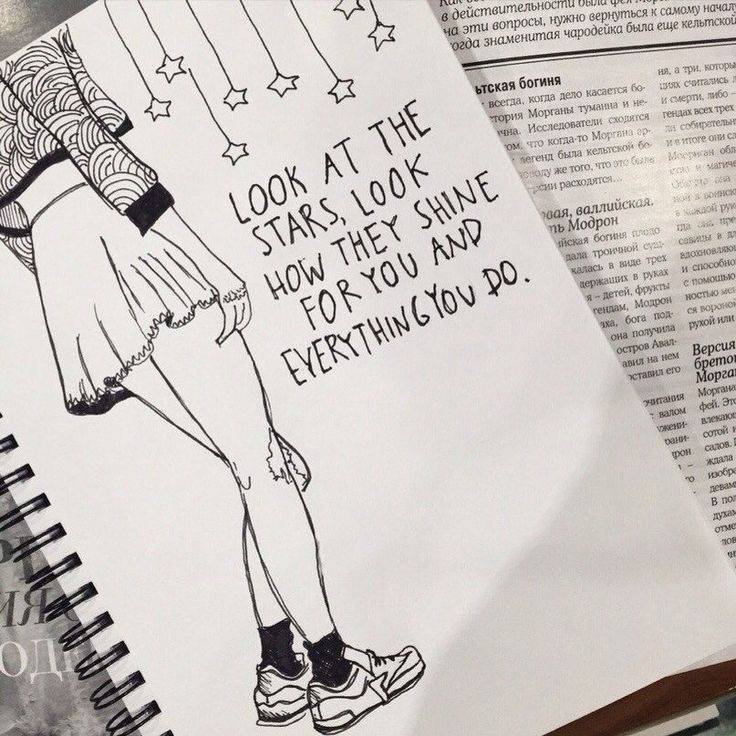 LOOK AT THE
STARS, LOOK
HOW THEY SHINE
FOR YOU AND
EVERYTHING YOU DO.
в действительности была фея Мор
на эти вопросы, нужно вернуться к самому началу
когда знаменитая чародейка была еще кельтской
ьтская богиня
всегда, когда дело касается бо-
тория Морганы туманна и не-
нна. Исследователи сходятся
том, что когда-то Моргана
легенд была кельтской бо-
же того, что это было
рсии расходятся...
вая, валлийская.
ть Модрон
йская богиня плодо
дала троичной сущ
калась в виде трех
держащих в руках
я – детей, фрукты
гендам, Модрон
аха, бога под-
она получила
остров Авал-
авил на нем
оставил его
очитания
валом
ужени-
рани-
дрон
ня, а три, которы
циях считались
и смерти, либо –
гендах всех трех
ли собирательн
и в итоге они сл
Морриган обл
с помощью
ностью мет
ся вороной
рукой или
Версия
бретон
Морган
Моргана
фей. Это
влекаю
сотой и
салов.
ждала
изобра
девам
В пол
духам
отме
лов
ОД